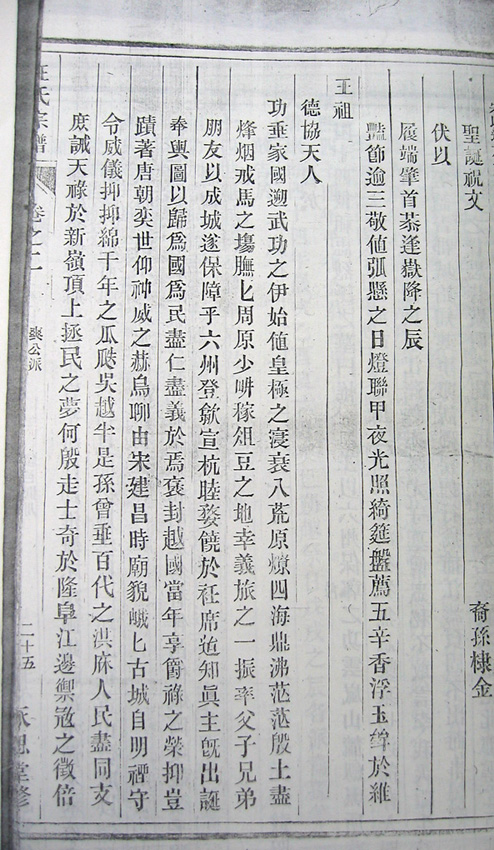 聖誕祝文
裔孫棣金
伏以
履端肇首恭逢嶽降之辰
豔節逾三敬値弧懸之日燈聯甲夜光照綺筵盤薦五辛香浮玉斝於維
王祖
德協天人
功垂家國遡武功之伊始値皇極之寖衰八荒原燎四海鼎沸茫茫殷土盡
烽烟戎馬之塲膴匕周原少畊稼俎豆之地幸義旅之一振率父子兄弟
朋友以成城遂保障乎六州登歙宣杭睦婺饒於袵席迨知眞主旣出誕
奉輿圖以歸爲國爲民盡仁盡義於焉褒封越國當年享爵祿之榮抑豈
蹟著唐朝奕世仰神威之赫烏聊由宋建昌時廟貌峨匕古城自明禋守
令威儀抑抑綿千年之瓜瓞吳越半是孫曾垂百代之洪庥人民盡同支
庶誠天祿於新嶺頂上拯民之夢何殷走士奇於隆阜江邊禦寇之徵倍
汪氏宗譜 卷之二 爽公派 二十五 堂修